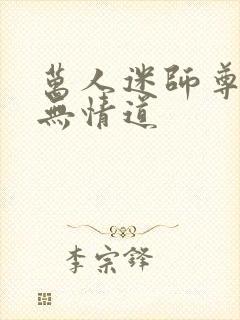 萬人迷師尊
無情道
李宗鋒